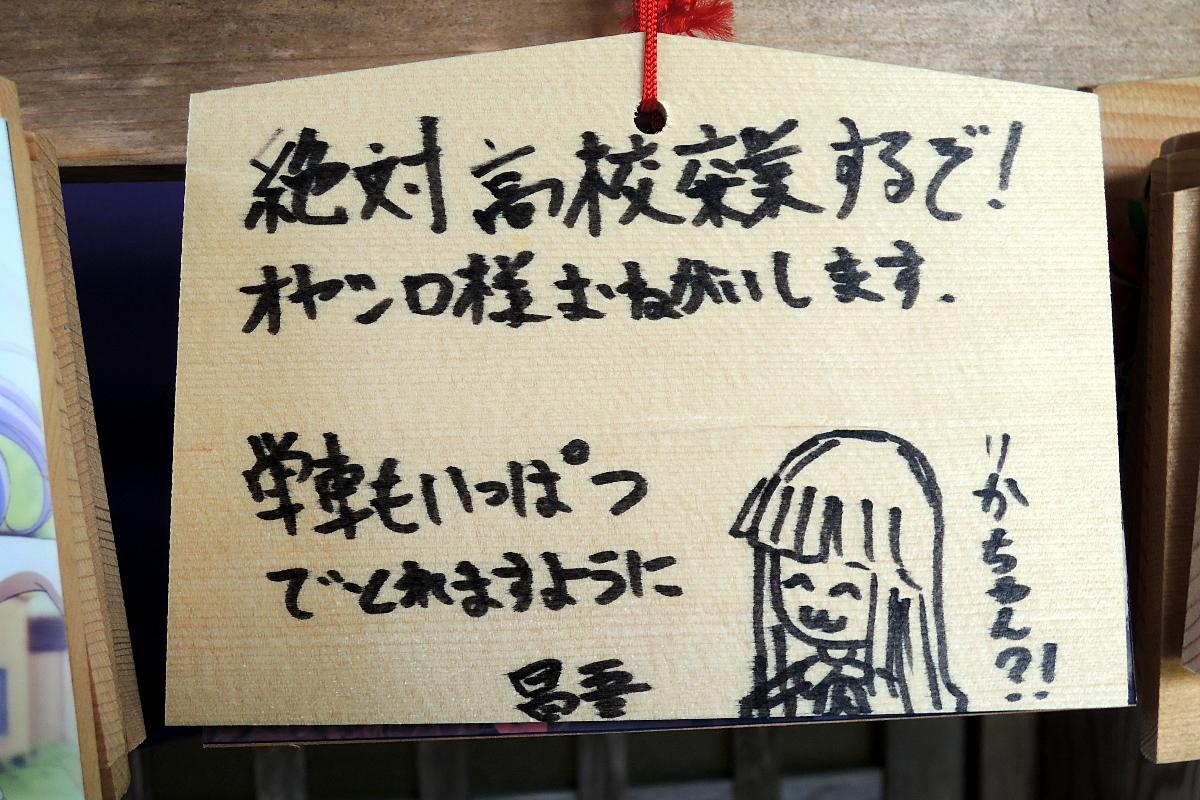 絶対高校卒業するで!
オヤシロ様おねがいします.
単車もいっぱつ
でとれますように
昌吾
りかちゃん?!